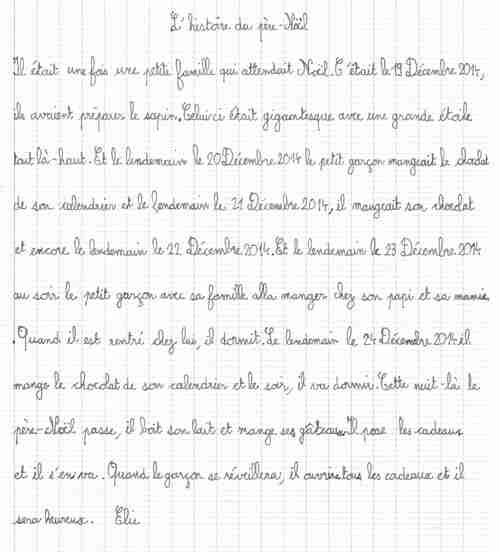 L'histoire du père-Noël
Il était une fois une petite famille qui attendait Noël. C'était le 19 Décembre 2014,
ils avaient préparer le sapin. Celui ci était gigantesque avec une grande étoile
tout là-haut. Et le lendemain le 20 Décembre 2014 le petit garçon mangeait le chocolat
de son calendrier et le lendemain le 21 Décembre 2014, il mangeait son chocolat
et encore le lendemain le 22 Décembre 2014. Et le lendemain le 23 Décembre 2014
au soir le petit garçon avec sa famille alla manger chez son papi et sa mamie
. Quand il est rentré chez lui, il dormit. Le lendemain le 24 Décembre 2014 il
mange le chocolat de son calendrier et le soir, il va dormir. Cette nuit-là le
père-Noël passe, il boit son lait et mange ses gâteaux. Il pose les cadeaux
et il s'en va. Quand le garçon se réveillera, il ouvrira tous les cadeaux et il
sera heureux. Elie